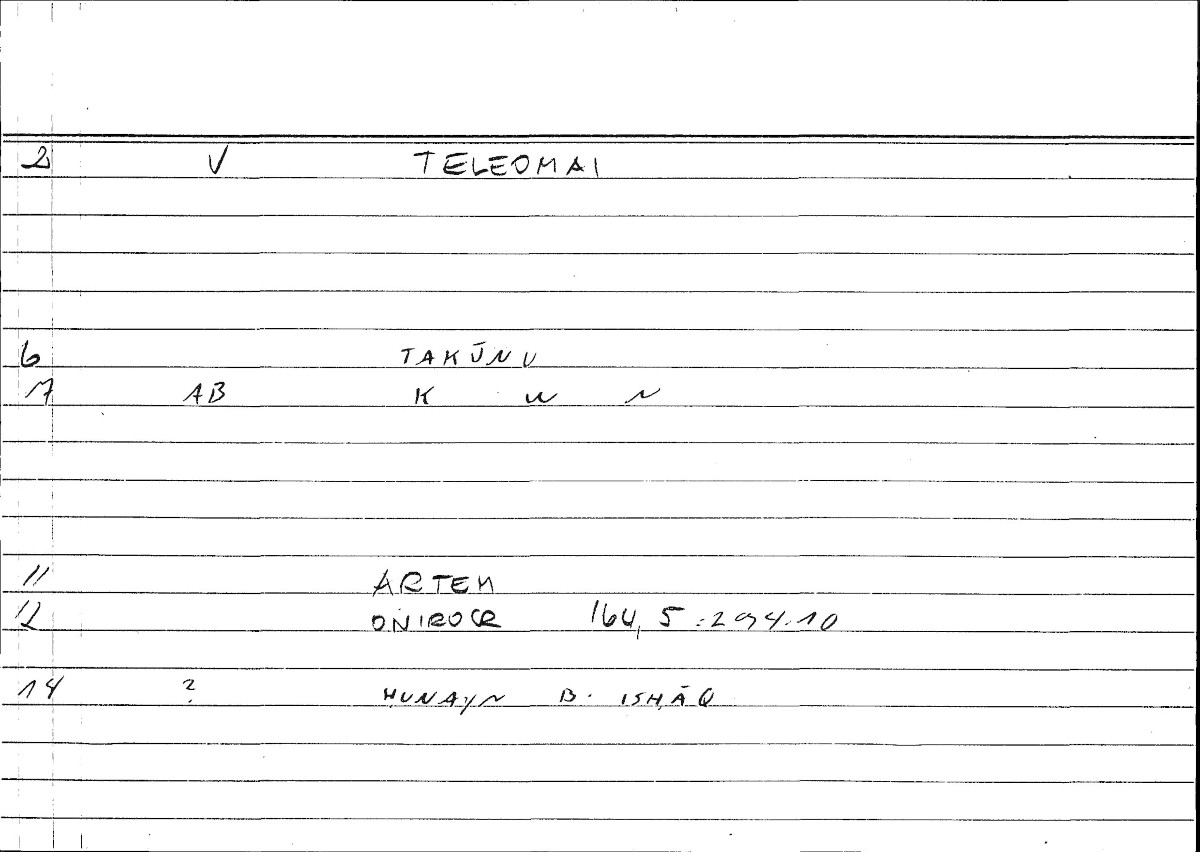 2 V TELEOMAI
6 TAKŪNU
7 AB K W N
11 ARTEM
12 ONIROCR 164,5:294.10
14 ? ḤUNAYN B. ISḤĀQ